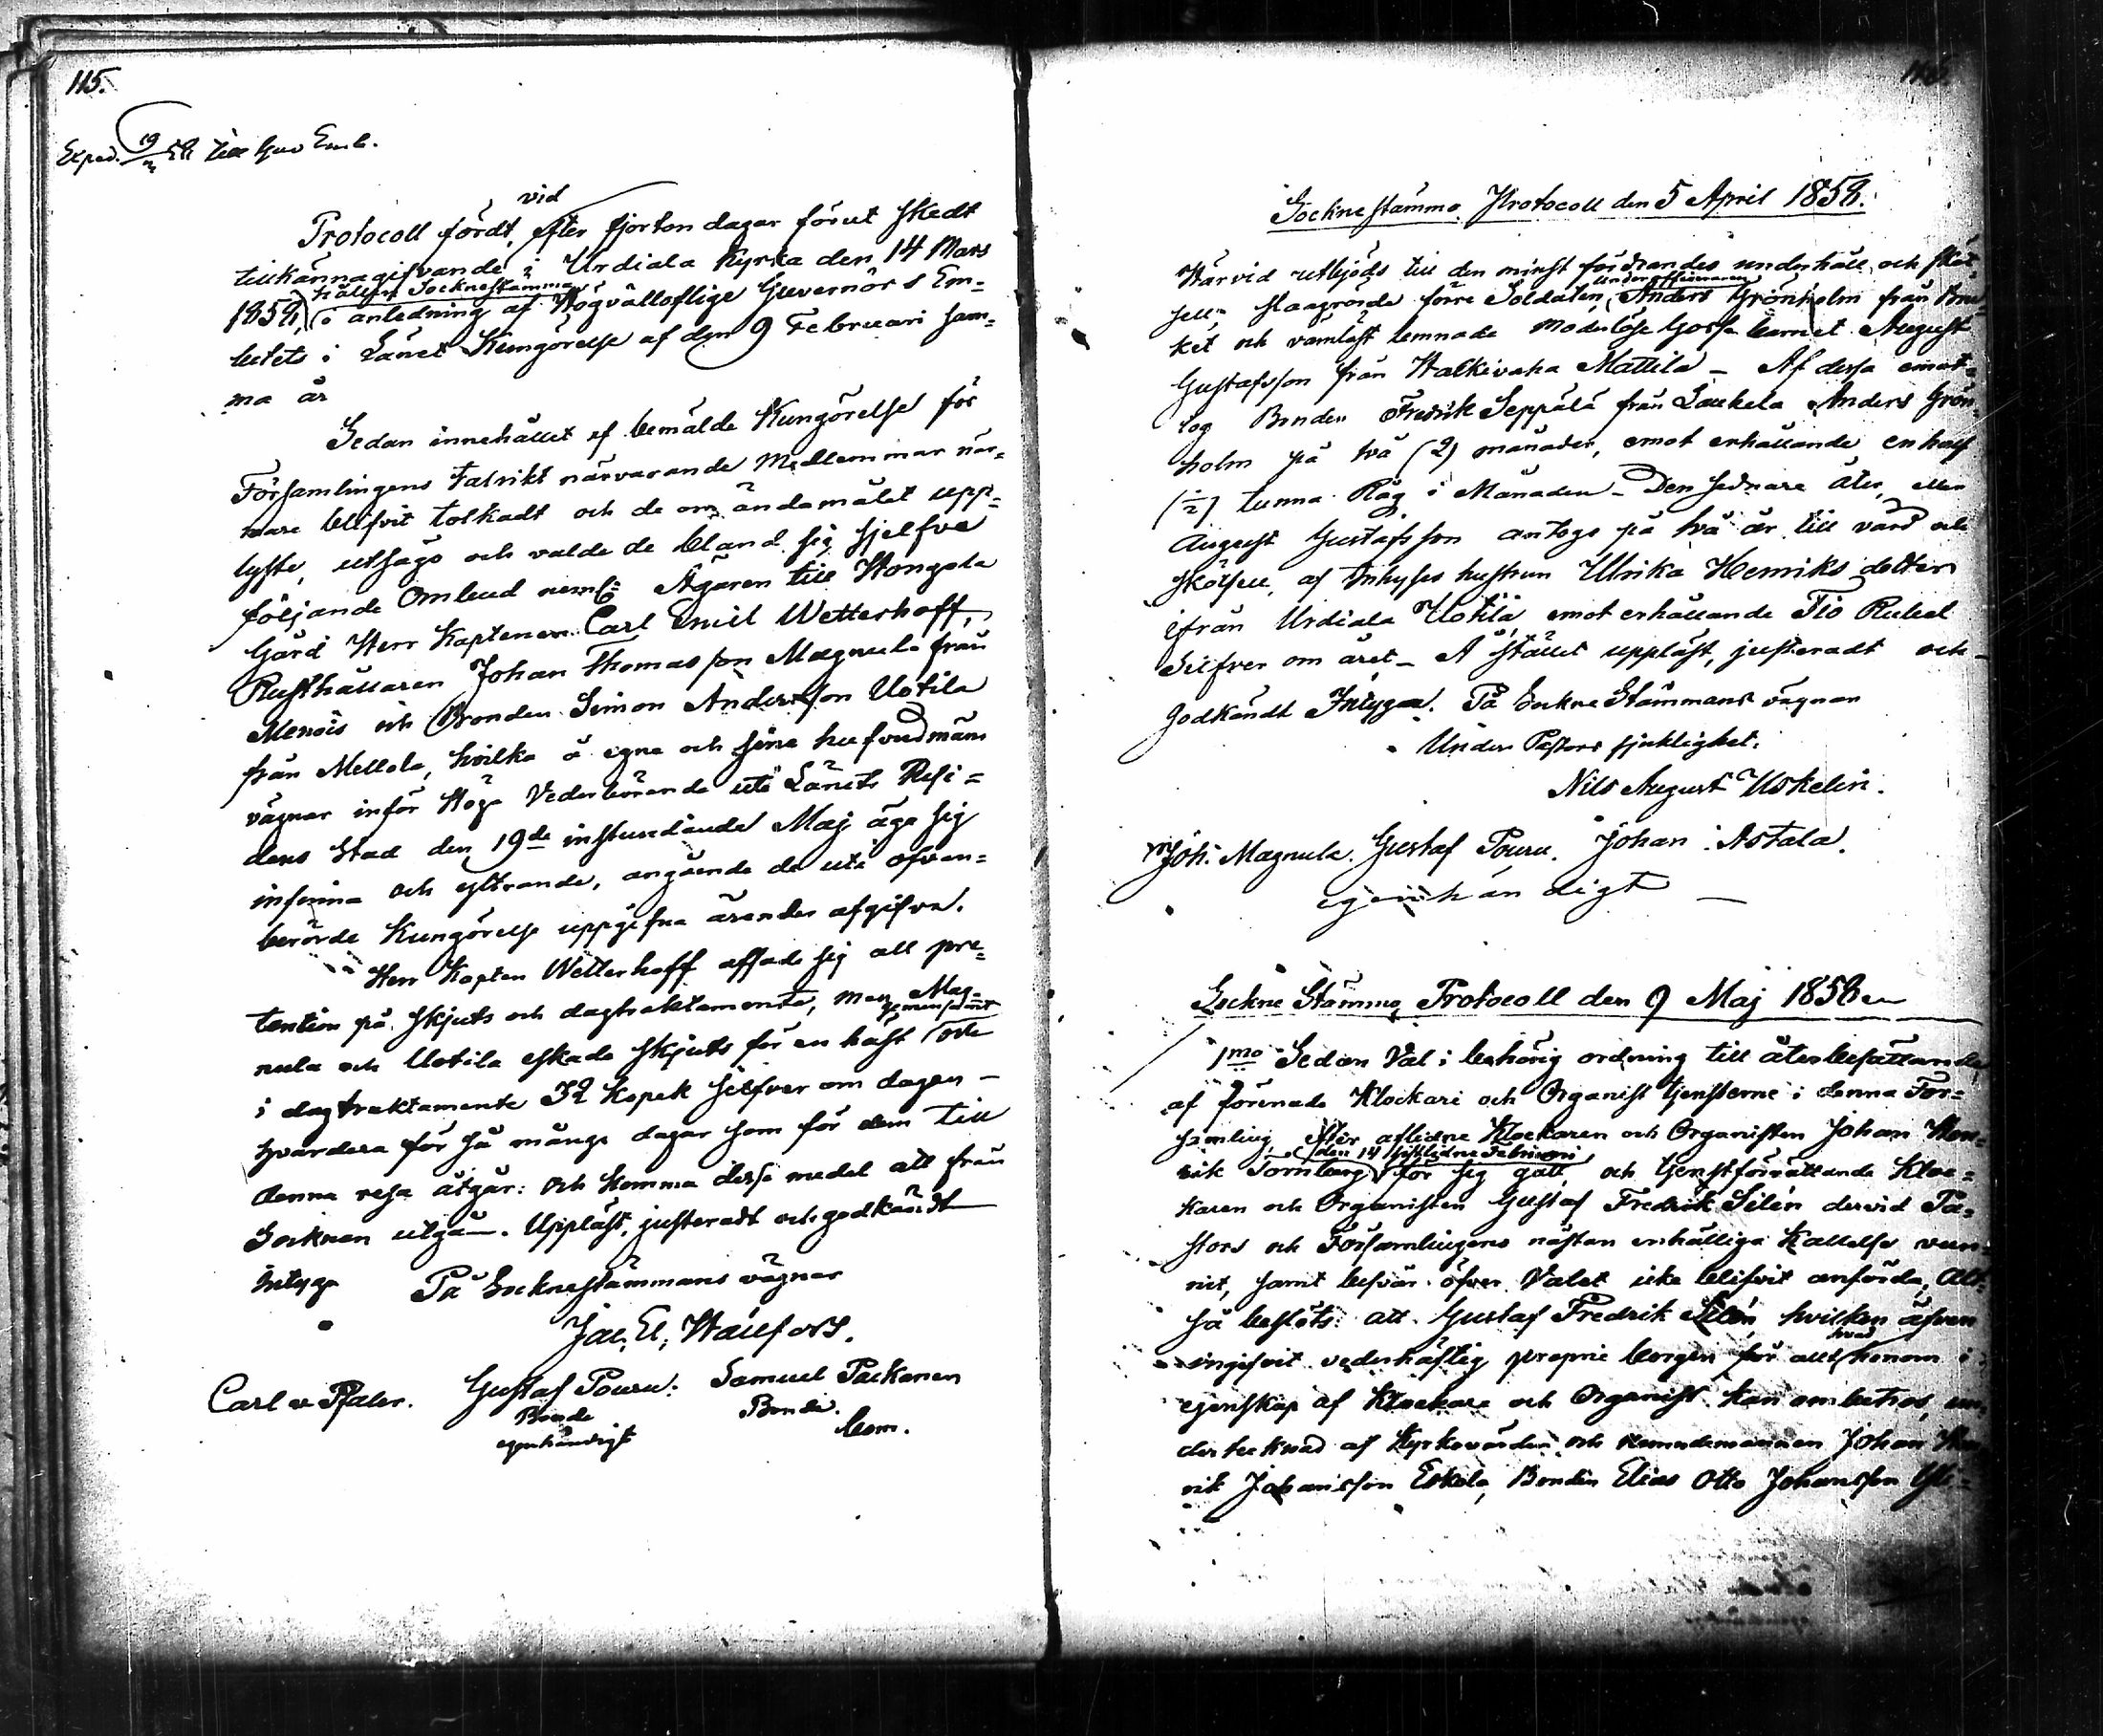 115.
Exped. 19/3 58 till Guv Emb.
vid
Protocoll fördt, efter fjorton dagar förut skedt
tillkännagifvande i Urdiala Kyrka den 14 Mars
hållen Socknestämma
1858, i anledning af Högvällofliga Guvernörs Em-
betets i Länet Kungörelse af den 9 Februari sam-
ma år
Sedan innehållet af bemälde Kungörelse för
Församlingens talrikt närvarande Medlemmar när-
mare blifvit tolkadt och de om ändamålet upp-
lyste, utsågo och valde de bland sig sjelfve
följande Ombud neml: Ägaren till Hongola
Gård Herr Kaptenen Carl Emil Wetterhoff,
Rusthållaren Johan Thomasson Magnula från
Menois och Bonden Simon Andersson Uotila
från Mellola, hvilka å egna och sina hufvudmäns
vägnar inför Höga Vederbörande uti Länets Resi-
dens Stad den 19de instundande Maj äga sig
infinna och yttrande, angående de uti ofvan-
berörde Kungörelse uppgifna ärenden afgifva.
Herr Kapten Wetterhoff afsade sig all pre-
tention på skjuts och dagtraktamente, men Mag-
gemensamt
nula och Uotila eskade skjuts för en häst och
i dagtraktamente 32 Kopek Silfver om dagen
hvardera för så många dagar som för dem till
denna resa åtgår: och komma dessa medel att från
Socknen utgå. Uppläst, justeradt och godkändt
betyga På Sockne stämmans vägnar
Jac. El. Hällfors.
Carl v Pfaler. Gustaf Pouru: Samuel Packanen
Bonde Bonde.
egenhändigt bom.
116.
Sockne stämmo Protocoll den 5 April 1858.
Härvid utbjöds till den minst fordrandes underhåll och sköt-
Underofficeraren
sell, slagrörde förre Soldaten, Anders Grönholm från
ket och vårdlöst lemnade moderlöse Gosse barnet August
Gustafsson från Halkivaha Mattila - Af dessa emot-
tog Bonden Fredrik Seppälä från Laukela Anders Grön-
holm på två (2) månader, emot erhållande en half
(1/2) tunna Råg i Månaden - Den sednare åter, eller
August Gustafsson antogs på två år till vård och
skötsell, af Inhyses hustrun Ulrika Henriks dotter
ifrån Urdiala Uotila emot erhållande Tio Rubel
Silfver om året - Å stället uppläst, justeradt och
godkändt Intygar. På Sockne Stämmans vägnar
Under Pastors sjuklighet.
Nils August Uskelin.
Joh: Magnula. Gustaf Pouru. Johan Astala.
egenhändigt
Sockne Stämmo Protocoll den 9 Maj 1858
1mo Sedan Val i behörig ordning till återbesättande
af förenade Klockare och Organist tjensterne i denna För-
samling, efter aflidne Klockaren och Organisten Johan Hen-
den 14 sistlidne Februari
rik Tornberg för sig gått, och tjenstförrättande Kloc-
karen och Organisten Gustaf Fredrik Silén dervid Pa-
stors och Församlingens nästan enhälliga Kallelse vun-
nit, samt besvär öfver Valet icke blifvit anförda, Alt-
så beslöts: att Gustaf Fredrik Silén, hvilken äfven
hvad
ingifvit vederhäftig proprie borgen för allt honom i
egenskap af Klockare och Organist kan ombetros, un-
dertecknad af Kyrkovärden och Nämndemannen Johan
rik Johansson Eskola, Bonden Elias Otto Johansson